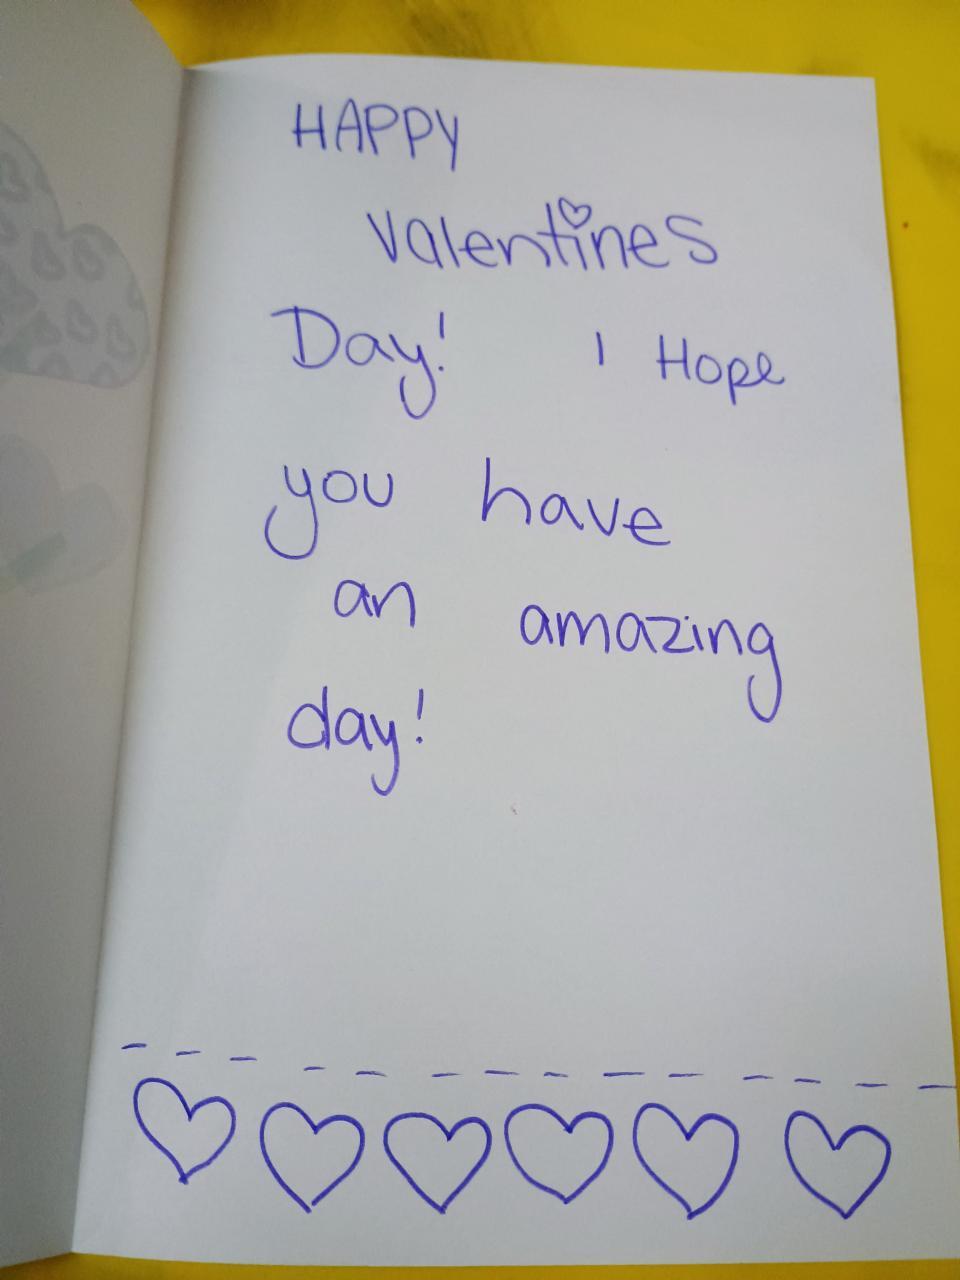 HAPPY
Valentines
Day! I Hope
you have
an amazing
day!